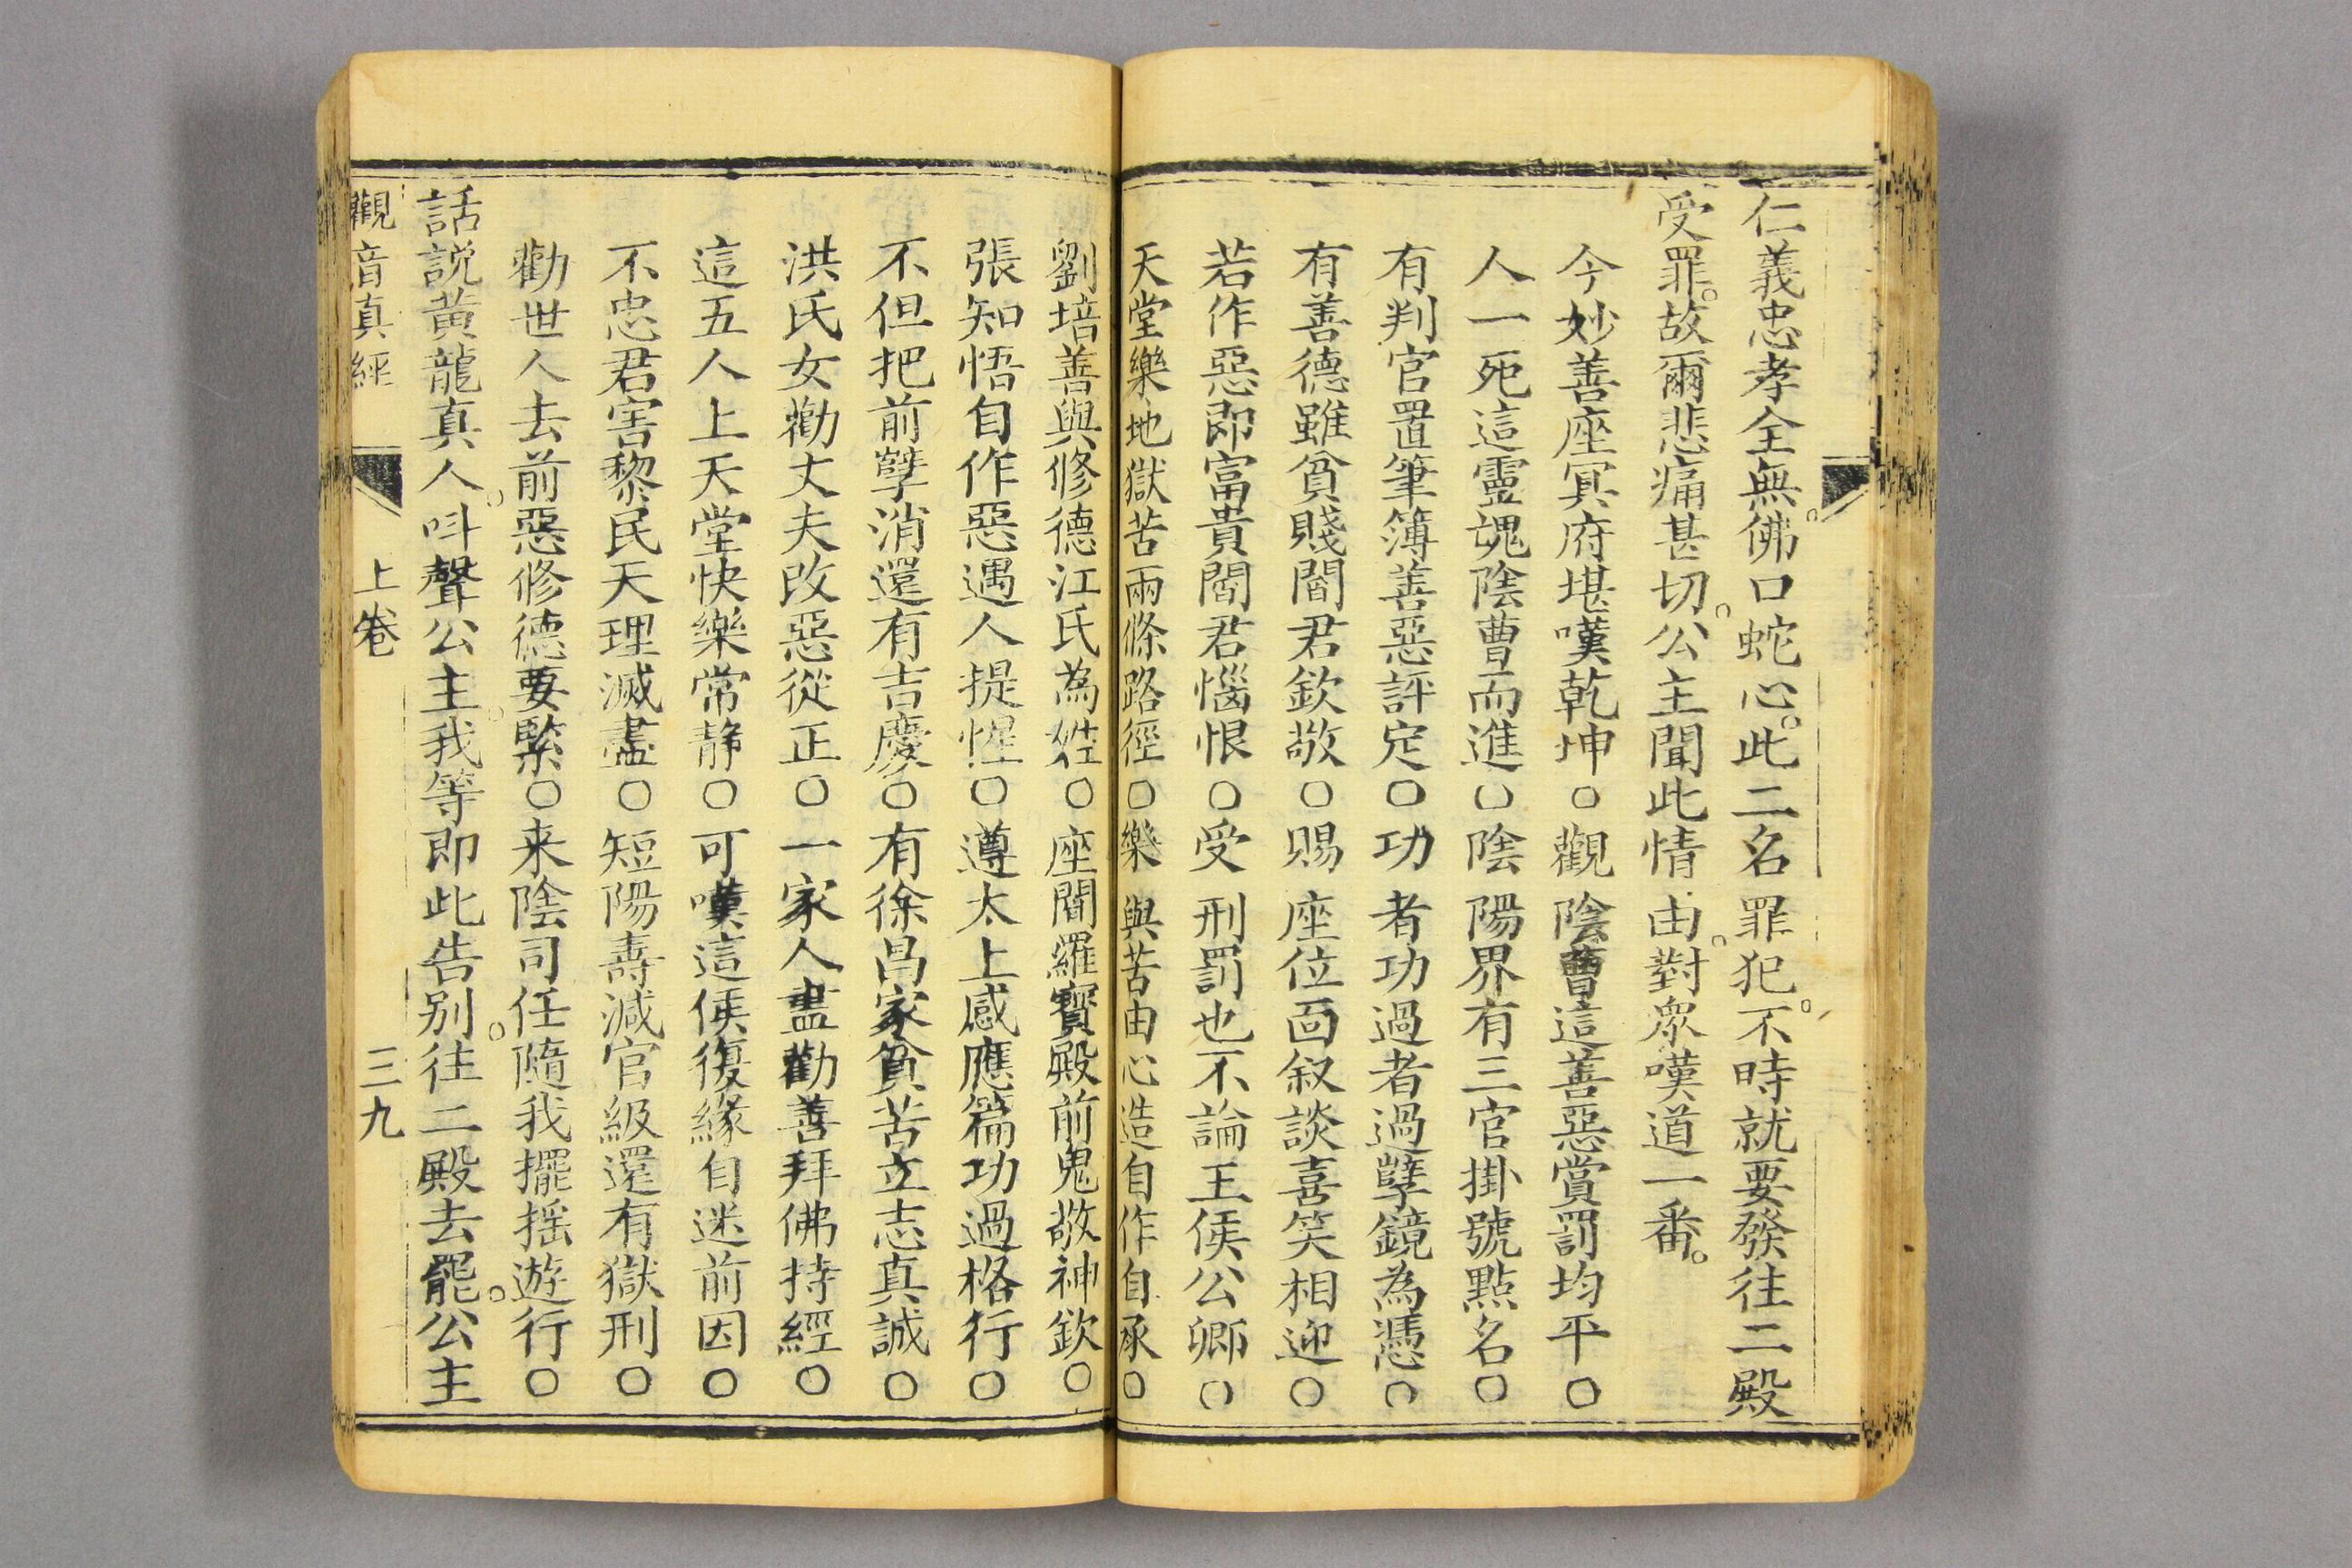 仁義忠孝全無。佛口蛇心。此二名罪犯。不時就要發往二殿
受罪。故爾悲痛甚切。公主聞此情由。對眾嘆道一番。
今妙善座冥府堪嘆乾坤○觀陰曹這善惡賞罰均平○
人一死這靈魂陰曹而進○陰陽界有三官掛號點名○
有判官置筆簿善惡評定○功者功過者過孽鏡為憑○
有善德雖貧賤閻君欽敬○賜座位面叙談喜笑相迎○
若作惡即富貴閻君惱恨○受刑罰也不論王侯公卿○
天堂樂地獄苦兩條路徑○樂與苦由心造自作自承○
劉培善與修德江氏為姓○座閻羅寶殿前鬼敬神欽○
張知悟自作惡遇人提惺○遵太上感應篇功過格行○
不但把前孽消還有吉慶○有徐昌家貧苦立志真誠○
洪氏女勸丈夫改惡從正○一家人盡勸善拜佛持經○
這五人上天堂快樂常静○可嘆這侯復緣自迷前因○
不忠君害黎民天理滅盡○短陽壽減官級還有獄刑○
勸世人去前惡修德要緊○来陰司任隨我擺摇遊行○
話説黃龍真人。呌聲公主。我等即此告别。往二殿去罷。公主
觀音真經 上卷 三九